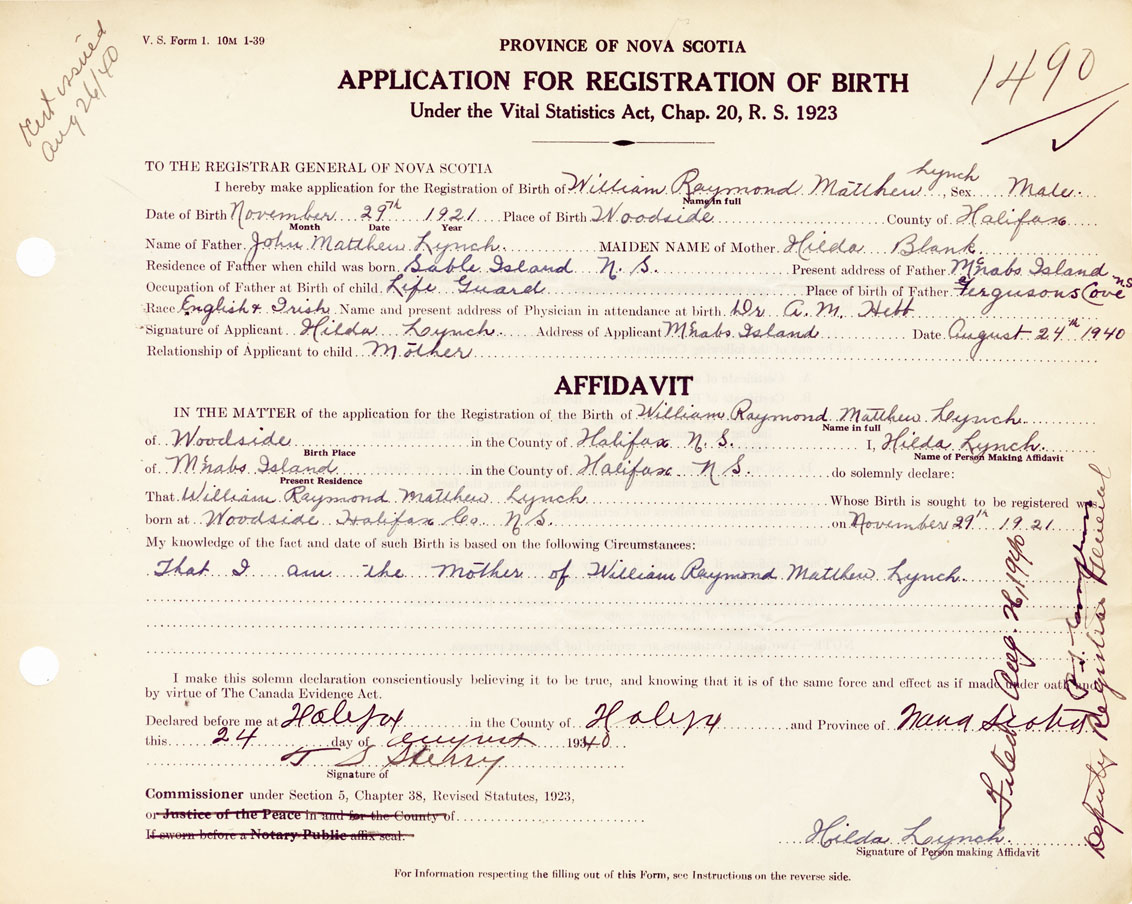 Cert issued
Aug 26/40
V. S. Form 1. 10M 1-39
PROVINCE OF NOVA SCOTIA
APPLICATION FOR REGISTRATION OF BIRTH
Under the Vital Statistics Act, Chap. 20, R. S. 1923
1490
TO THE REGISTRAR GENERAL OF NOVA SCOTIA
I hereby make application for the Registration of Birth of William Raymond Matthew Lynch, Sex Male
Name in full
Date of Birth November 29th 1921 Place of Birth Woodside County of Halifax
Month Date Year
Name of Father John Matthew Lynch MAIDEN NAME of Mother Hilda Blank
Residence of Father when child was born Sable Island N. S. Present address of Father McNabs Island
Occupation of Father at Birth of child Life Guard Place of birth of Father Fergusons Cove NS
Race English & Irish Name and present address of Physician in attendance at birth Dr A. M. Hebb
Signature of Applicant Hilda Lynch Address of Applicant McNabs Island Date August 24th 1940
Relationship of Applicant to child Mother
AFFIDAVIT
IN THE MATTER of the application for the Registration of the Birth of William Raymond Matthew Lynch
Name in full
of Woodside in the County of Halifax N. S. I, Hilda Lynch
Birth Place Name of Person Making Affidavit
of McNabs Island in the County of Halifax N S. do solemnly declare:
Present Residence
That William Raymond Matthew Lynch Whose Birth is sought to be registered was
born at Woodside Halifax Co. N S. on November 29th 1921
My knowledge of the fact and date of such Birth is based on the following Circumstances:
That I am the Mother of William Raymond Matthew Lynch
I make this solemn declaration conscientiously believing it to be true, and knowing that it is of the same force and effect as if made under oath and
by virtue of The Canada Evidence Act.
Declared before me at Halifax in the County of Halifax and Province of Nova Scotia
this 24 day of August 1940
Signature of
Commissioner under Section 5, Chapter 38, Revised Statutes, 1923,
or Justice of the Peace in and for the County of
If sworn before a Notary Public affix seal.
Hilda Lynch
Signature of Person making Affidavit
For Information respecting the filling out of this Form, see Instructions on the reverse side.
Filed Aug. 26, 1940
Deputy Registrar General